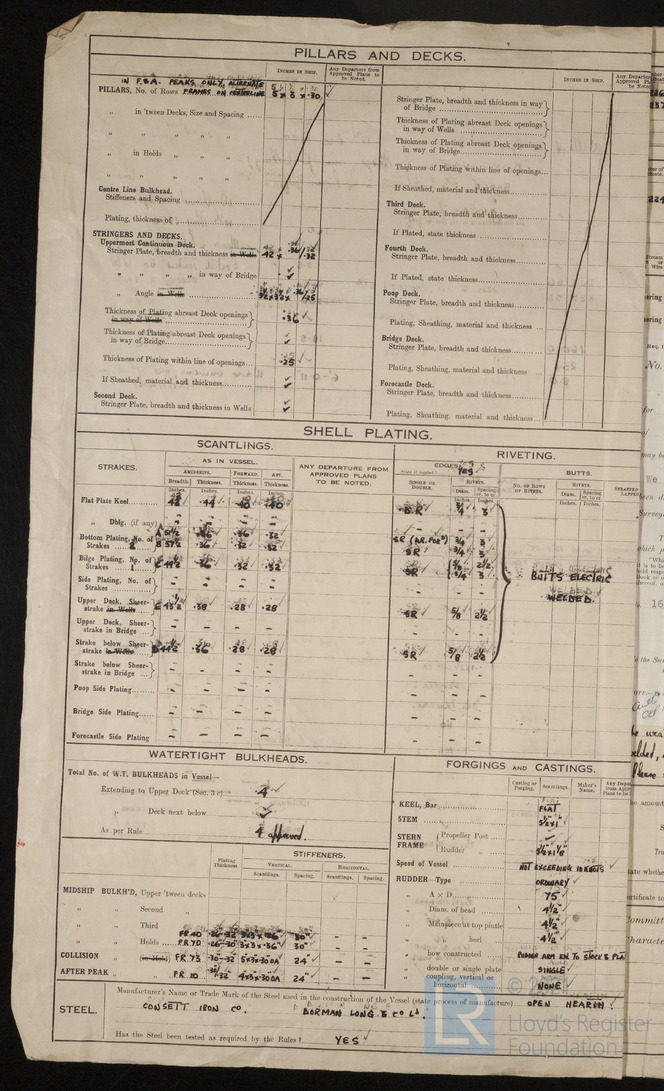 PILLARS AND DECKS.
INCHES IN SHIP.
Any Departure from Approved Plans to be Noted.
IN F&A. PEAKS ONLY, ALTERNATE
PILLARS, No. of Rows FRAMES ON CENTERLINE 5 x 3 x .30
" in 'tween Decks, Size and Spacing
" " " "
" in Holds " "
" " " "
Centre Line Bulkhead.
Stiffeners and Spacing
Plating, thickness of
STRINGERS AND DECKS.
Uppermost Continuous Deck.
Stringer Plate, breadth and thickness in Wells 42 x .36/.32
" " " " in way of Bridge
" Angle in Wells
Thickness of Plating abreast Deck openings in way of Wells .36
Thickness of Plating abreast Deck openings in way of Bridge
Thickness of Plating within line of openings .25
If Sheathed, material and thickness
Second Deck.
Stringer Plate, breadth and thickness in Wells
INCHES IN SHIP.
Stringer Plate, breadth and thickness in way of Bridge
Thickness of Plating abreast Deck openings in way of Wells
Thickness of Plating abreast Deck openings in way of Bridge
Thickness of Plating within line of openings
If Sheathed, material and thickness
Third Deck.
Stringer Plate, breadth and thickness
If Plated, state thickness
Fourth Deck.
Stringer Plate, breadth and thickness
If Plated, state thickness
Poop Deck.
Stringer Plate, breadth and thickness
Plating, Sheathing, material and thickness
Bridge Deck.
Stringer Plate, breadth and thickness
Plating, Sheathing, material and thickness
Forecastle Deck.
Stringer Plate, breadth and thickness
Plating, Sheathing, material and thickness
SHELL PLATING.
SCANTLINGS.
RIVETING.
STRAKES.
AS IN VESSEL.
AMIDSHIPS. FORWARD. AFT.
Breadth. Thickness. Thickness. Thickness.
Inches. Inches. Inches. Inches.
ANY DEPARTURE FROM APPROVED PLANS TO BE NOTED.
EDGES YES
SINGLE OR DOUBLE.
RIVETS.
Diam. Spacing cr. to cr.
Inches. Inches.
BUTTS.
NO. OF ROWS OF RIVETS.
RIVETS.
Diam. Spacing cr. to cr.
Inches. Inches.
Flat Plate Keel .44 .40 .40 SR 3/4 3
" Dblg. (if any) - - - - - - -
Bottom Plating, No. of Strakes 2 A .36 .36 .32 SR (AR. FOR'D) 3/4 3
B .36 .32 .32 SR 3/4 3
Bilge Plating, No. of Strakes 1 .36 .32 .32 SR 5/8 2 1/2 3/4 3
Side Plating, No. of Strakes - - - - - - -
Upper Deck, Sheerstrake in Wells E 43 1/2 .38 .28 .28 SR 5/8 2 1/2
Upper Deck, Sheerstrake in Bridge - - - - - - -
Strake below Sheerstrake in Wells D 44 1/2 .36 .28 .28 SR 5/8 2 1/2
Strake below Sheerstrake in Bridge - - - - - - -
Poop Side Plating - - - - - - -
Bridge Side Plating - - - - - - -
Forecastle Side Plating - - - - - - -
BUTTS ELECTRIC
WELDED.
WATERTIGHT BULKHEADS.
Total No. of W.T. BULKHEADS in Vessel—
Extending to Upper Deck (Sec. 3 c) 4
" Deck next below
As per Rule 4 approved.
Plating Thickness.
STIFFENERS.
VERTICAL. HORIZONTAL.
Scantlings. Spacing. Scantlings. Spacing.
MIDSHIP BULKH'D, Upper 'tween decks
" " Second "
" " Third "
" " Holds FR 40 .26-.32 30"
FR 70 .26-.30 3x3x.36 30" - -
COLLISION " (in Hold) FR 73 .30-.32 5x3x.30 OA 24" - -
AFTER PEAK " " FR 10 4x3x.30 OA 24" - -
FORGINGS AND CASTINGS.
Casting or Forging. Scantlings. Maker's Name.
KEEL, Bar FLAT
STEM 5 1/2 x 1"
STERN FRAME Propeller Post
Rudder " 5 1/2 x 1 1/8"
Speed of Vessel NOT EXCEEDING 10 KNOTS
RUDDER—Type ORDINARY
" A x D 75
" Diam. of head 4 1/2"
" Mainpiece at top pintle 4 1/2"
" " heel 4 1/2"
" how constructed RUDDER ARM KN TO STOCK & PLA
" double or single plate SINGLE
" coupling, vertical or horizontal NONE
STEEL.
Manufacturer's Name or Trade Mark of the Steel used in the construction of the Vessel (state process of manufacture) OPEN HEARTH
CONSETT IRON CO. DORMAN LONG & CO LD.
Has the Steel been tested as required by the Rules? YES
© 20
LR
Lloyd's Register
Foundation